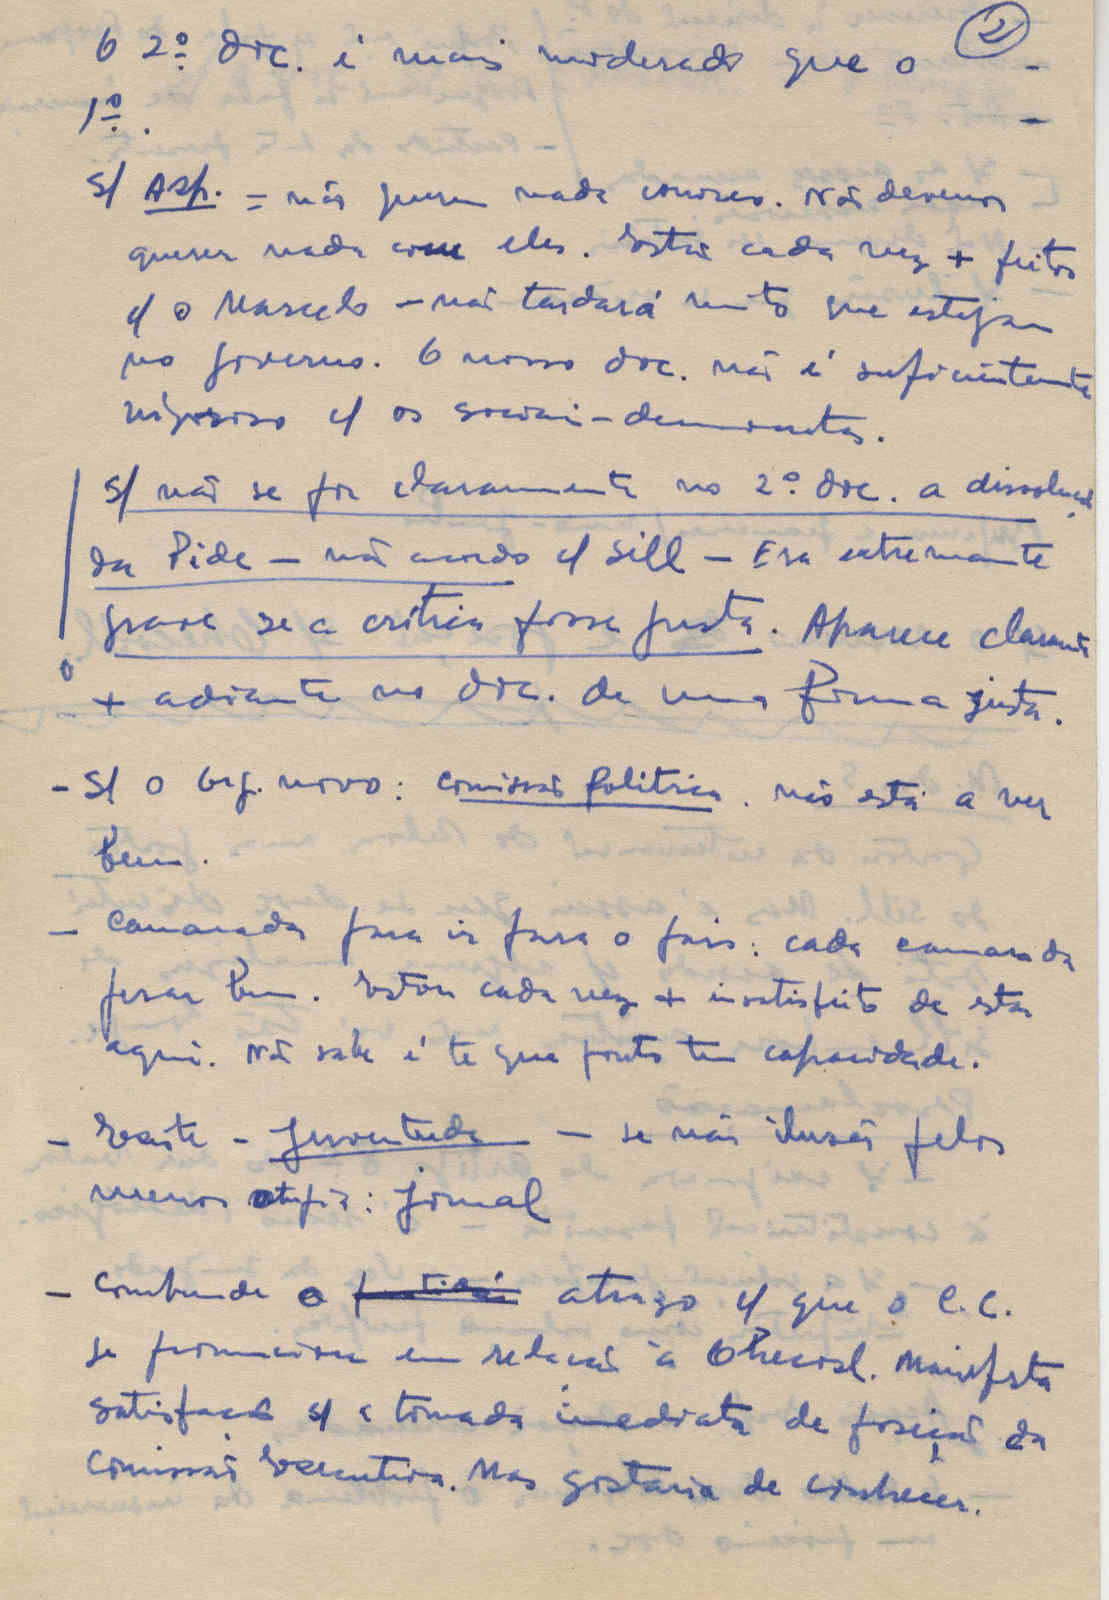 2
O 2º doc. é mais moderado que o -
1º. -
s/ Asp. = não querem nada conosco. Nós devemos
querer nada com eles. Estão cada vez + feitos
c/ o Marcelo - não tardará muito que estejam
no governo. O nosso doc. não é suficientemente
rigoroso c/ os sociais-democratas.
s/ não se pôr claramente no 2º doc. a dissolução
da Pide - não acordo c/ Sill - Era extremamente
grave se a crítica fosse justa. Aparece claramente
+ adiante no doc. de uma forma justa.
- s/ o org. novo: comissão Política. não está a ver
bem.
- Camaradas para ir para o país: cada camarada
pesar bem. Estou cada vez + insatisfeito de estar
aqui. Não sabe é te que ponto tem capacidade.
- Existe - Juventude - se não ilusão pelos
menos : jornal
- Compreende o atrazo c/ que o C.C.
se pronunciou em relação à Checosl. Manifesta
satisfação s/ a tomada imediata de posição da
Comissão Executiva. Mas gostaria de conhecer.